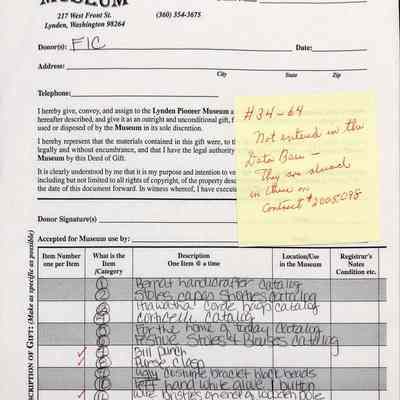 MUSEUM
217 West Front St.
Lynden, Washington 98264
(360) 354-3675
Donor(s): FIC Date:
Address:
City State Zip
Telephone:
I hereby give, convey, and assign to the Lynden Pioneer Museum a
hereafter described, and give it as an outright and unconditional gift, f
used or disposed of by the Museum in its sole discretion.
I hereby represent that the materials contained in this gift were, to th
legally and without encumbrance, and that I have the legal authority
Museum by this Deed of Gift.
It is clearly understood by me that it is my purpose and intention to ve
including but not limited to all rights of copyright, of the property desc
the date of this document forward. In witness whereof, I have execute
#34-64
Not entered in the
Data Base -
They are already
in there on
Contract # 2005.098
Donor Signature(s)
Accepted for Museum use by:
DESCRIPTION OF GIFT: (Make as specific as possible)
Item Number one per Item
What is the Item /Category
Description One Item @ a time
Location/Use in the Museum
Registrar's Notes Condition etc.
1 Bernat handicrafter catalog
2 Stoles capes Shorties catalog
3 Hiawatha corde bags catalog
4 Corticelli catalog
5 For the home of today catalog
6 Festive Stoles & Blouses catalog
7 Bill punch
8 Purse clasp
9 Ugly costume braclet black beads
10 left hand white glove 1 button
11 Wire bristles on end of wooden pole